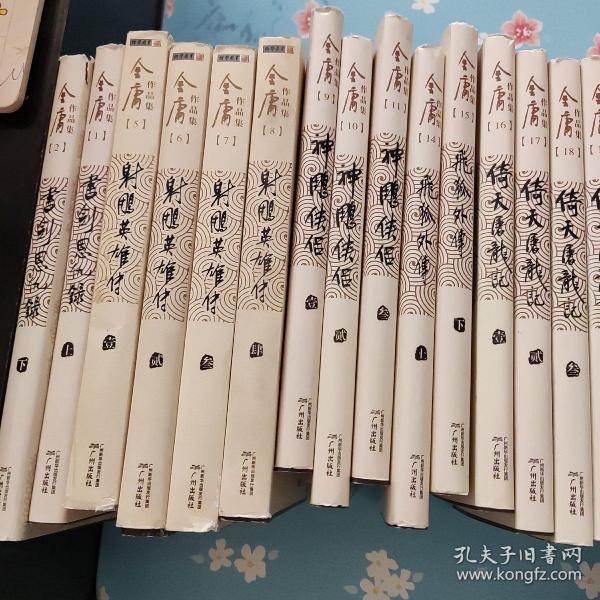 金庸作品集【2】
書劍恩仇錄
下
广州出版社
金庸作品集【1】
書劍恩仇錄
上
广州出版社
金庸作品集【5】
射鵰英雄传
壹
广州出版社
金庸作品集【6】
射鵰英雄传
贰
广州出版社
金庸作品集【7】
射鵰英雄传
叁
广州出版社
金庸作品集【8】
射鵰英雄传
肆
广州出版社
金庸作品集【9】
神鵰俠侣
壹
广州出版社
金庸作品集【10】
神鵰俠侣
贰
广州出版社
金庸作品集【11】
神鵰俠侣
叁
广州出版社
金庸作品集【14】
飛狐外傳
上
广州出版社
金庸作品集【15】
飛狐外傳
下
广州出版社
金庸作品集【16】
倚天屠龍記
壹
广州出版社
金庸作品集【17】
倚天屠龍記
贰
广州出版社
金庸作品集【18】
倚天屠龍記
叁
广州出版社
孔夫子旧书网
www.kongfz.com